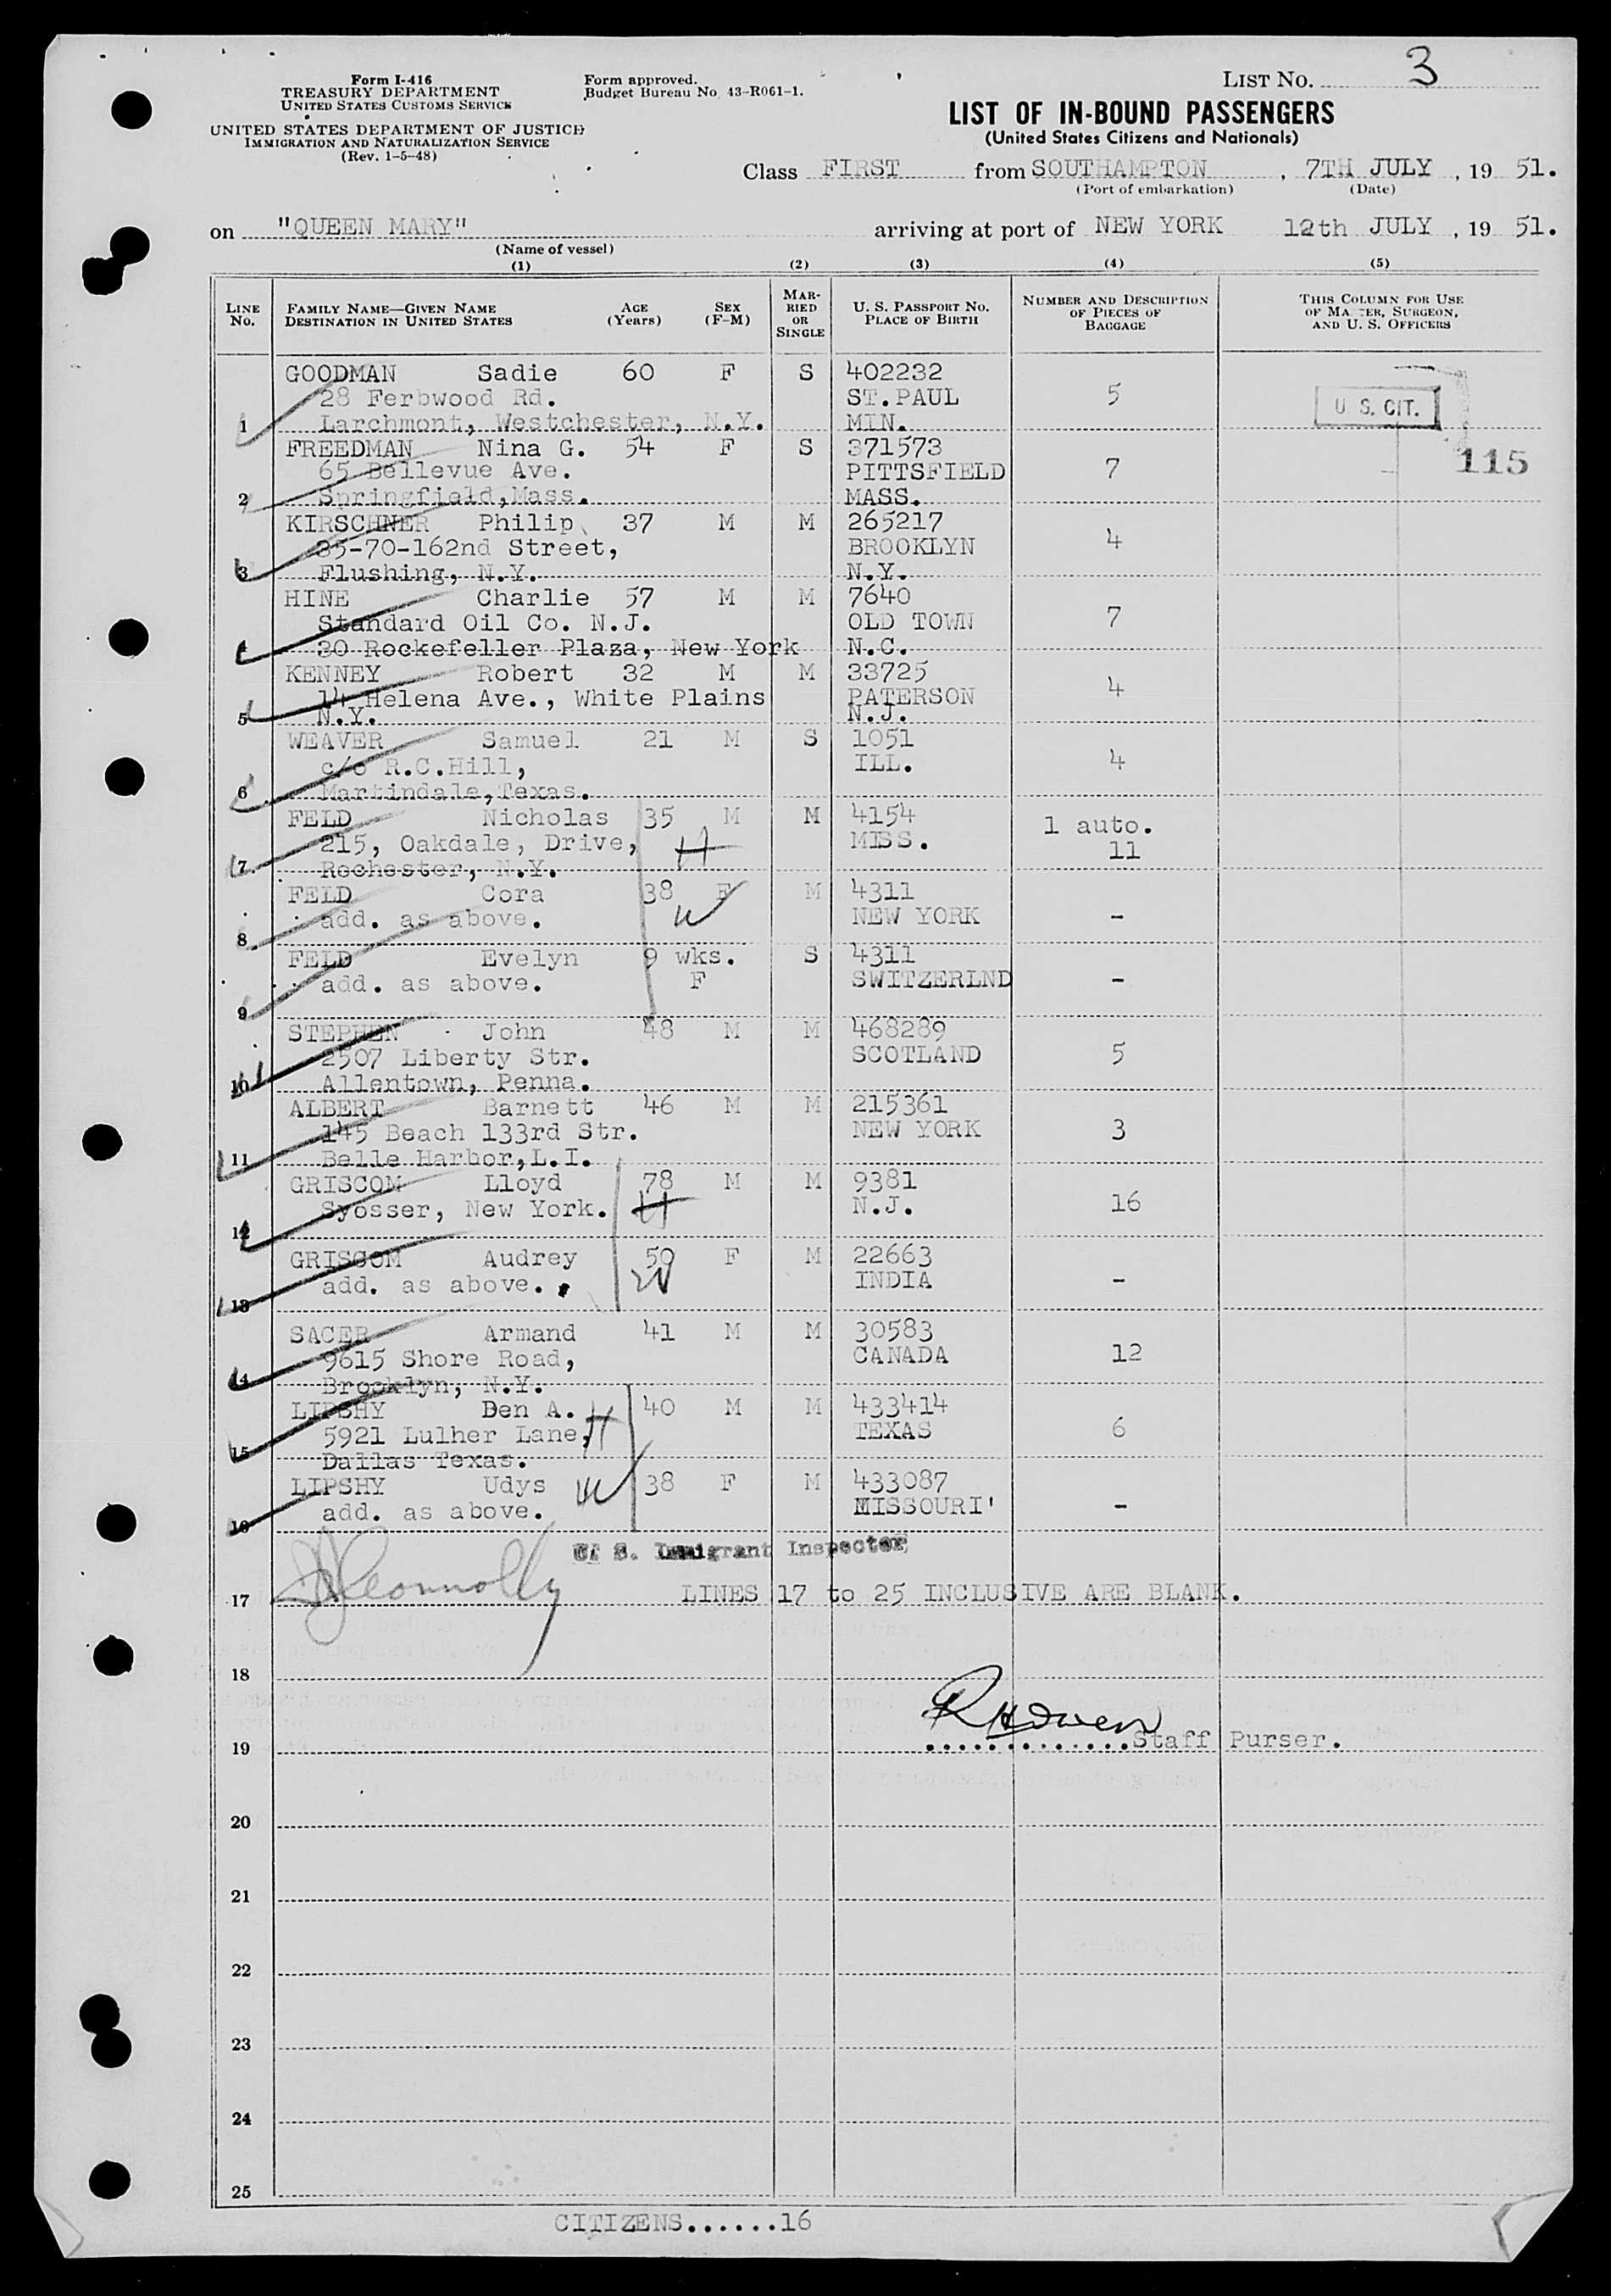 Form I-416
TREASURY DEPARTMENT
UNITED STATES CUSTOMS SERVICE
UNITED STATES DEPARTMENT OF JUSTICE
IMMIGRATION AND NATURALIZATION SERVICE
(Rev. 1-5-48)
Form approved.
Budget Bureau No. 43-R061-1.
LIST NO. 3
LIST OF IN-BOUND PASSENGERS
(United States Citizens and Nationals)
Class FIRST from SOUTHAMPTON, 7TH JULY, 19 51.
(Port of embarkation) (Date)
on "QUEEN MARY" arriving at port of NEW YORK 12th JULY, 19 51.
(Name of vessel)
(1) (2) (3) (4) (5)
LINE NO. FAMILY NAME—GIVEN NAME DESTINATION IN UNITED STATES AGE (Years) SEX (F-M) MARRIED OR SINGLE U. S. PASSPORT NO. PLACE OF BIRTH NUMBER AND DESCRIPTION OF PIECES OF BAGGAGE THIS COLUMN FOR USE OF MASTER, SURGEON, AND U. S. OFFICERS
GOODMAN Sadie 60 F S 402232
28 Ferbwood Rd. ST.PAUL 5 U S. CIT.
1 Larchmont, Westchester, N.Y. MIN.
FREEDMAN Nina G. 54 F S 371573 115
65 Bellevue Ave. PITTSFIELD 7
2 Springfield,Mass. MASS.
KIRSCHNER Philip 37 M M 265217
35-70-162nd Street, BROOKLYN 4
3 Flushing, N.Y. N.Y.
HINE Charlie 57 M M 7640
Standard Oil Co. N.J. OLD TOWN 7
4 30 Rockefeller Plaza, New York N.C.
KENNEY Robert 32 M M 33725
14 Helena Ave., White Plains PATERSON 4
5 N.Y. N.J.
WEAVER Samuel 21 M S 1051
c/o R.C.Hill, ILL. 4
6 Martindale,Texas.
FELD Nicholas 35 M M 4154 1 auto.
215, Oakdale, Drive, H MISS. 11
7 Rochester, N.Y.
FELD Cora 38 F M 4311
add. as above. W NEW YORK -
8
FELD Evelyn 9 wks. S 4311
add. as above. F SWITZERLND -
9
STEPHEN John 48 M M 468289
2507 Liberty Str. SCOTLAND 5
10 Allentown, Penna.
ALBERT Barnett 46 M M 215361
145 Beach 133rd Str. NEW YORK 3
11 Belle Harbor,L.I.
GRISCOM Lloyd 78 M M 9381
Syosser, New York. H N.J. 16
12
GRISCOM Audrey 50 F M 22663
add. as above. W INDIA -
13
SACER Armand 41 M M 30583
9615 Shore Road, CANADA 12
14 Brooklyn, N.Y.
LIPSHY Ben A. H 40 M M 433414
5921 Lulher Lane, TEXAS 6
15 Dallas Texas.
LIPSHY Udys W 38 F M 433087
add. as above. MISSOURI' -
16
U. S. Immigrant Inspector
17 LINES 17 to 25 INCLUSIVE ARE BLANK.
18
19 Staff Purser.
20
21
22
23
24
25
CITIZENS......16